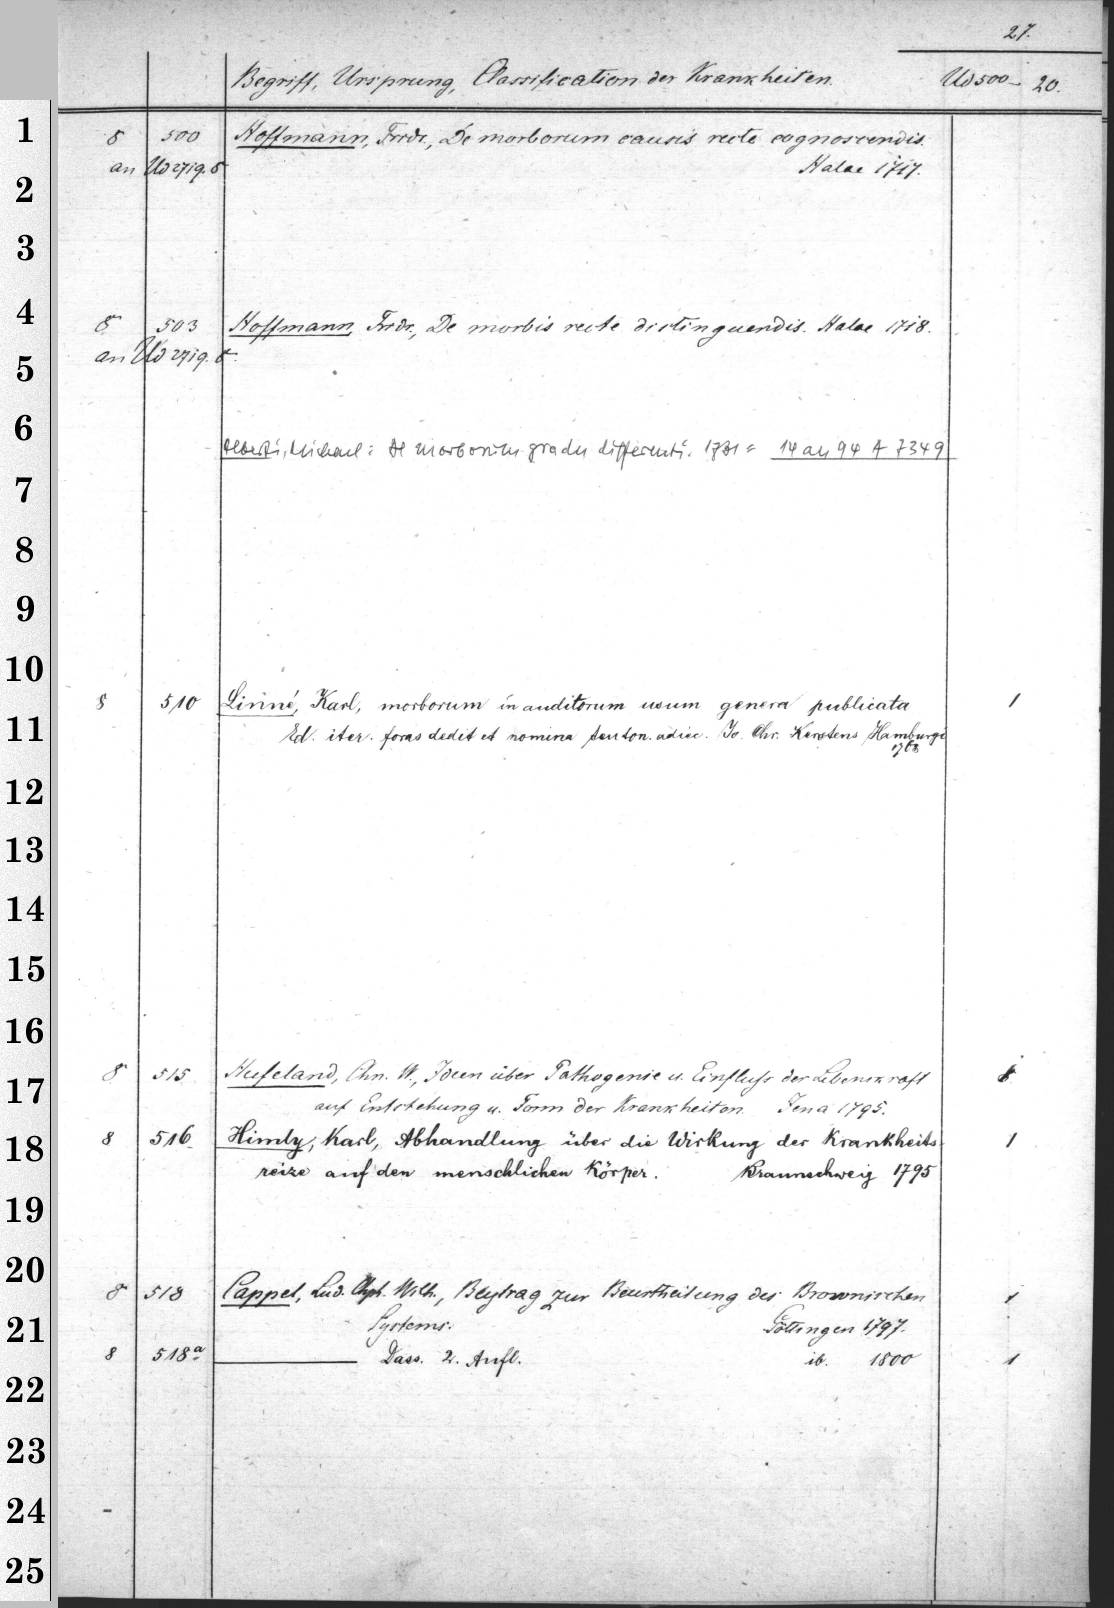 27.
Begriff, Ursprung, Classification der Krankheiten. Ud 500 – 20.
1
8 500 Hoffmann, Frdr., De morborum causis recte cognoscendis.
an Ud 2719.8 Halae 1717.
2
3
4
8 503 Hoffmann, Frdr., De morbis recte distinguendis. Halae 1718.
an Ud 2719.8.
5
6
Alberti, Michael: De morborum gradu differenti. 1721 = 14 an 94 A 7349
7
8
9
10
8 510 Linné, Karl, morborum in auditorum usum genera publicata 1
11
Ed. iter. foras dedit et nomina teuton. adiec. Jo. Chr. Kerstens Hamburgi
12
13
14
15
16
8 515 Hufeland, Chn. W., Ideen über Pathogenie u. Einfluss der Lebenskraft
17
auf Entstehung u. Form der Krankheiten. Jena 1795.
8 516 Himly, Karl, Abhandlung über die Wirkung der Krankheits- 1
18
reize auf den menschlichen Körper. Braunschweig 1795
19
20
8 518 Cappel, Lud. Chph. Wilh., Beytrag zur Beurtheilung des Brownischen 1
21
Systems. Göttingen 1797.
8 518a Dass. 2. Aufl. ib. 1800 1
22
23
24 -
25